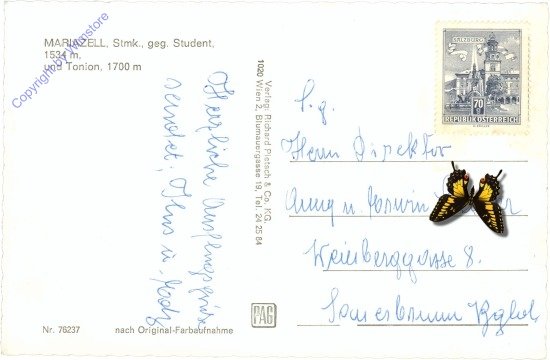 MARIAZELL, Stmk., geg. Student,
1534 m,
und Tonion, 1700 m
Copyright by Winstore
Herzliche Ausflugsgrüße
sendet, Ihns u.
Verlag: Richard Pietsch & Co. KG.
1020 Wien 2, Blumauergasse 19, Tel. 24 25 84
SALZBURG
70
REPUBLIK ÖSTERREICH
S.g.
Herrn Direktor
u.
Weinberggasse 8.
Sauerbrunn Bgld.
Nr. 76237
nach Original-Farbaufnahme
PAG